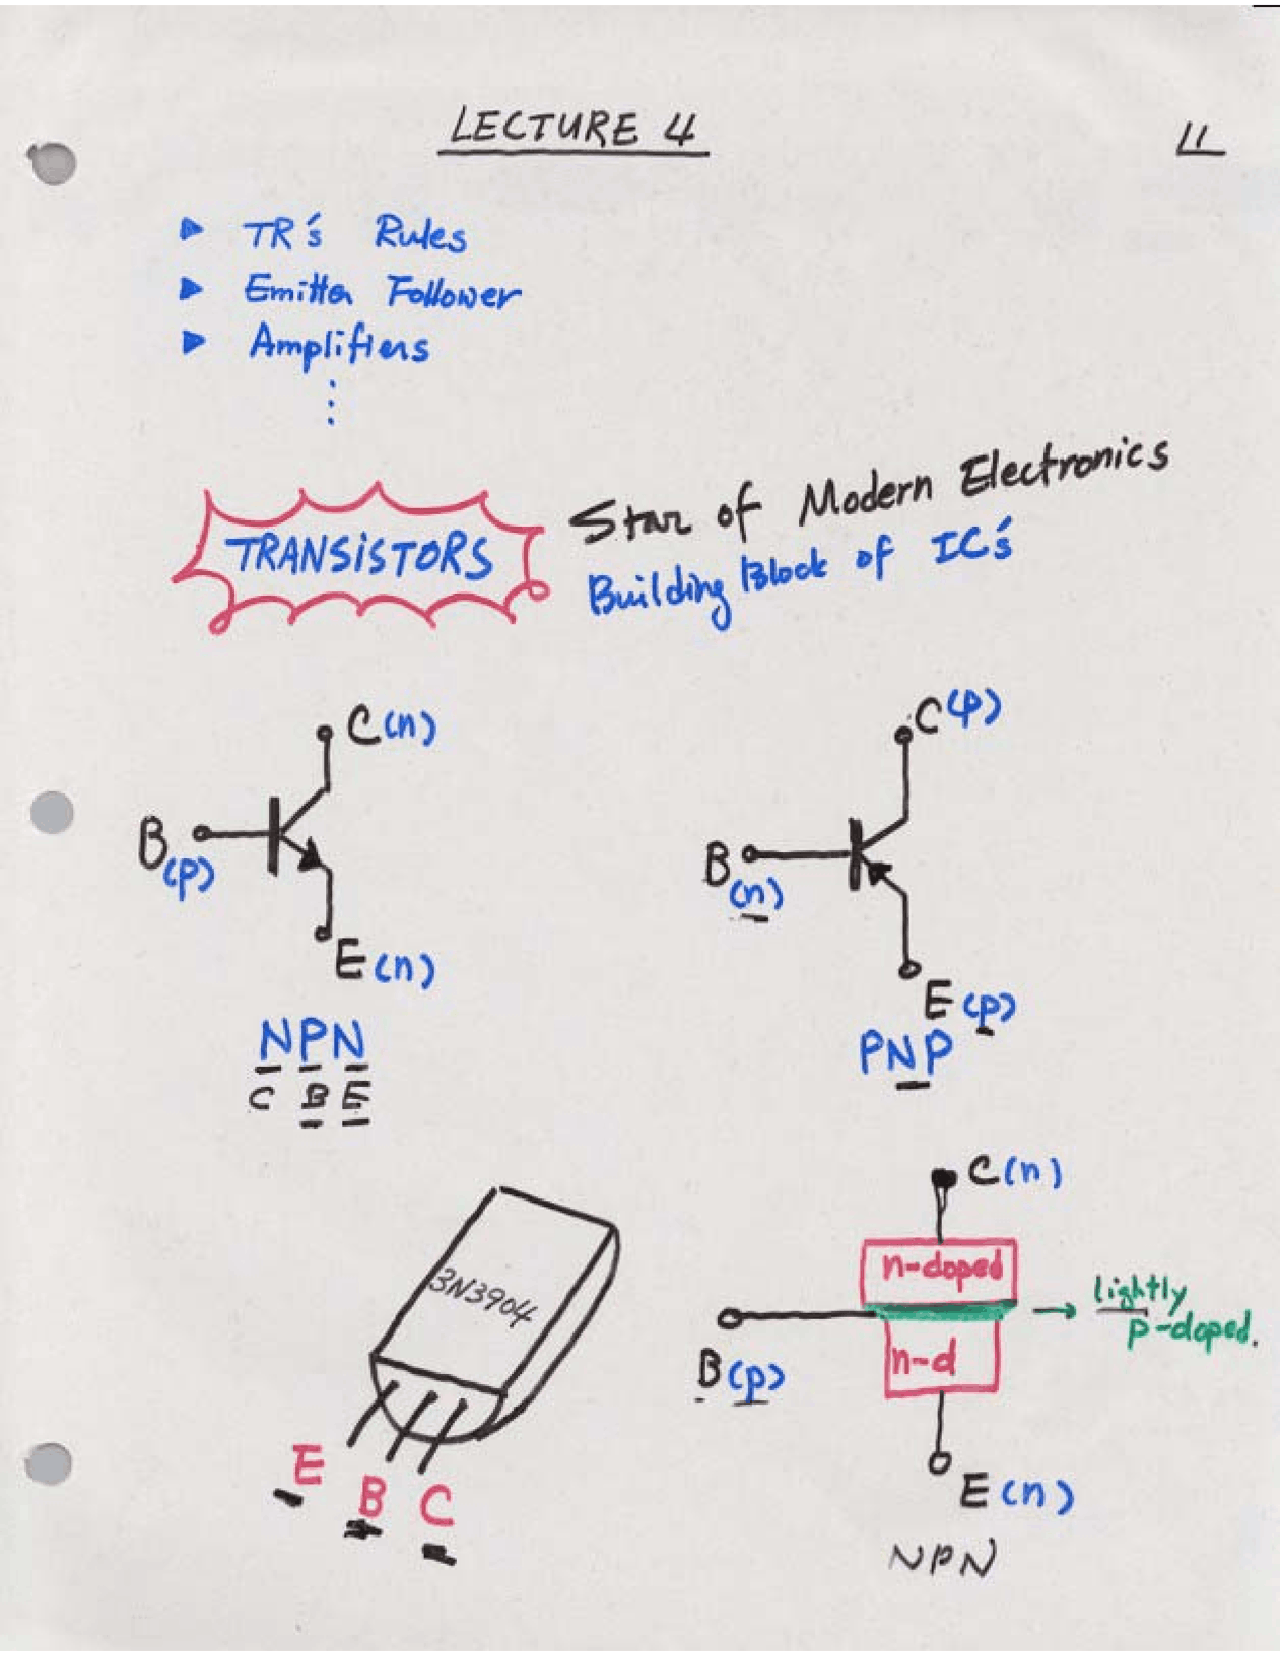 LECTURE 4
11
▶ TR's Rules
▶ Emitter Follower
▶ Amplifiers
⋮
TRANSISTORS
Star of Modern Electronics
Building Block of IC's
C (n)
B (p)
E (n)
NPN
C B E
C (p)
B (n)
E (p)
PNP
3N3904
E B C
C (n)
n-doped
lightly
p-doped.
n-d
B (p)
E (n)
NPN